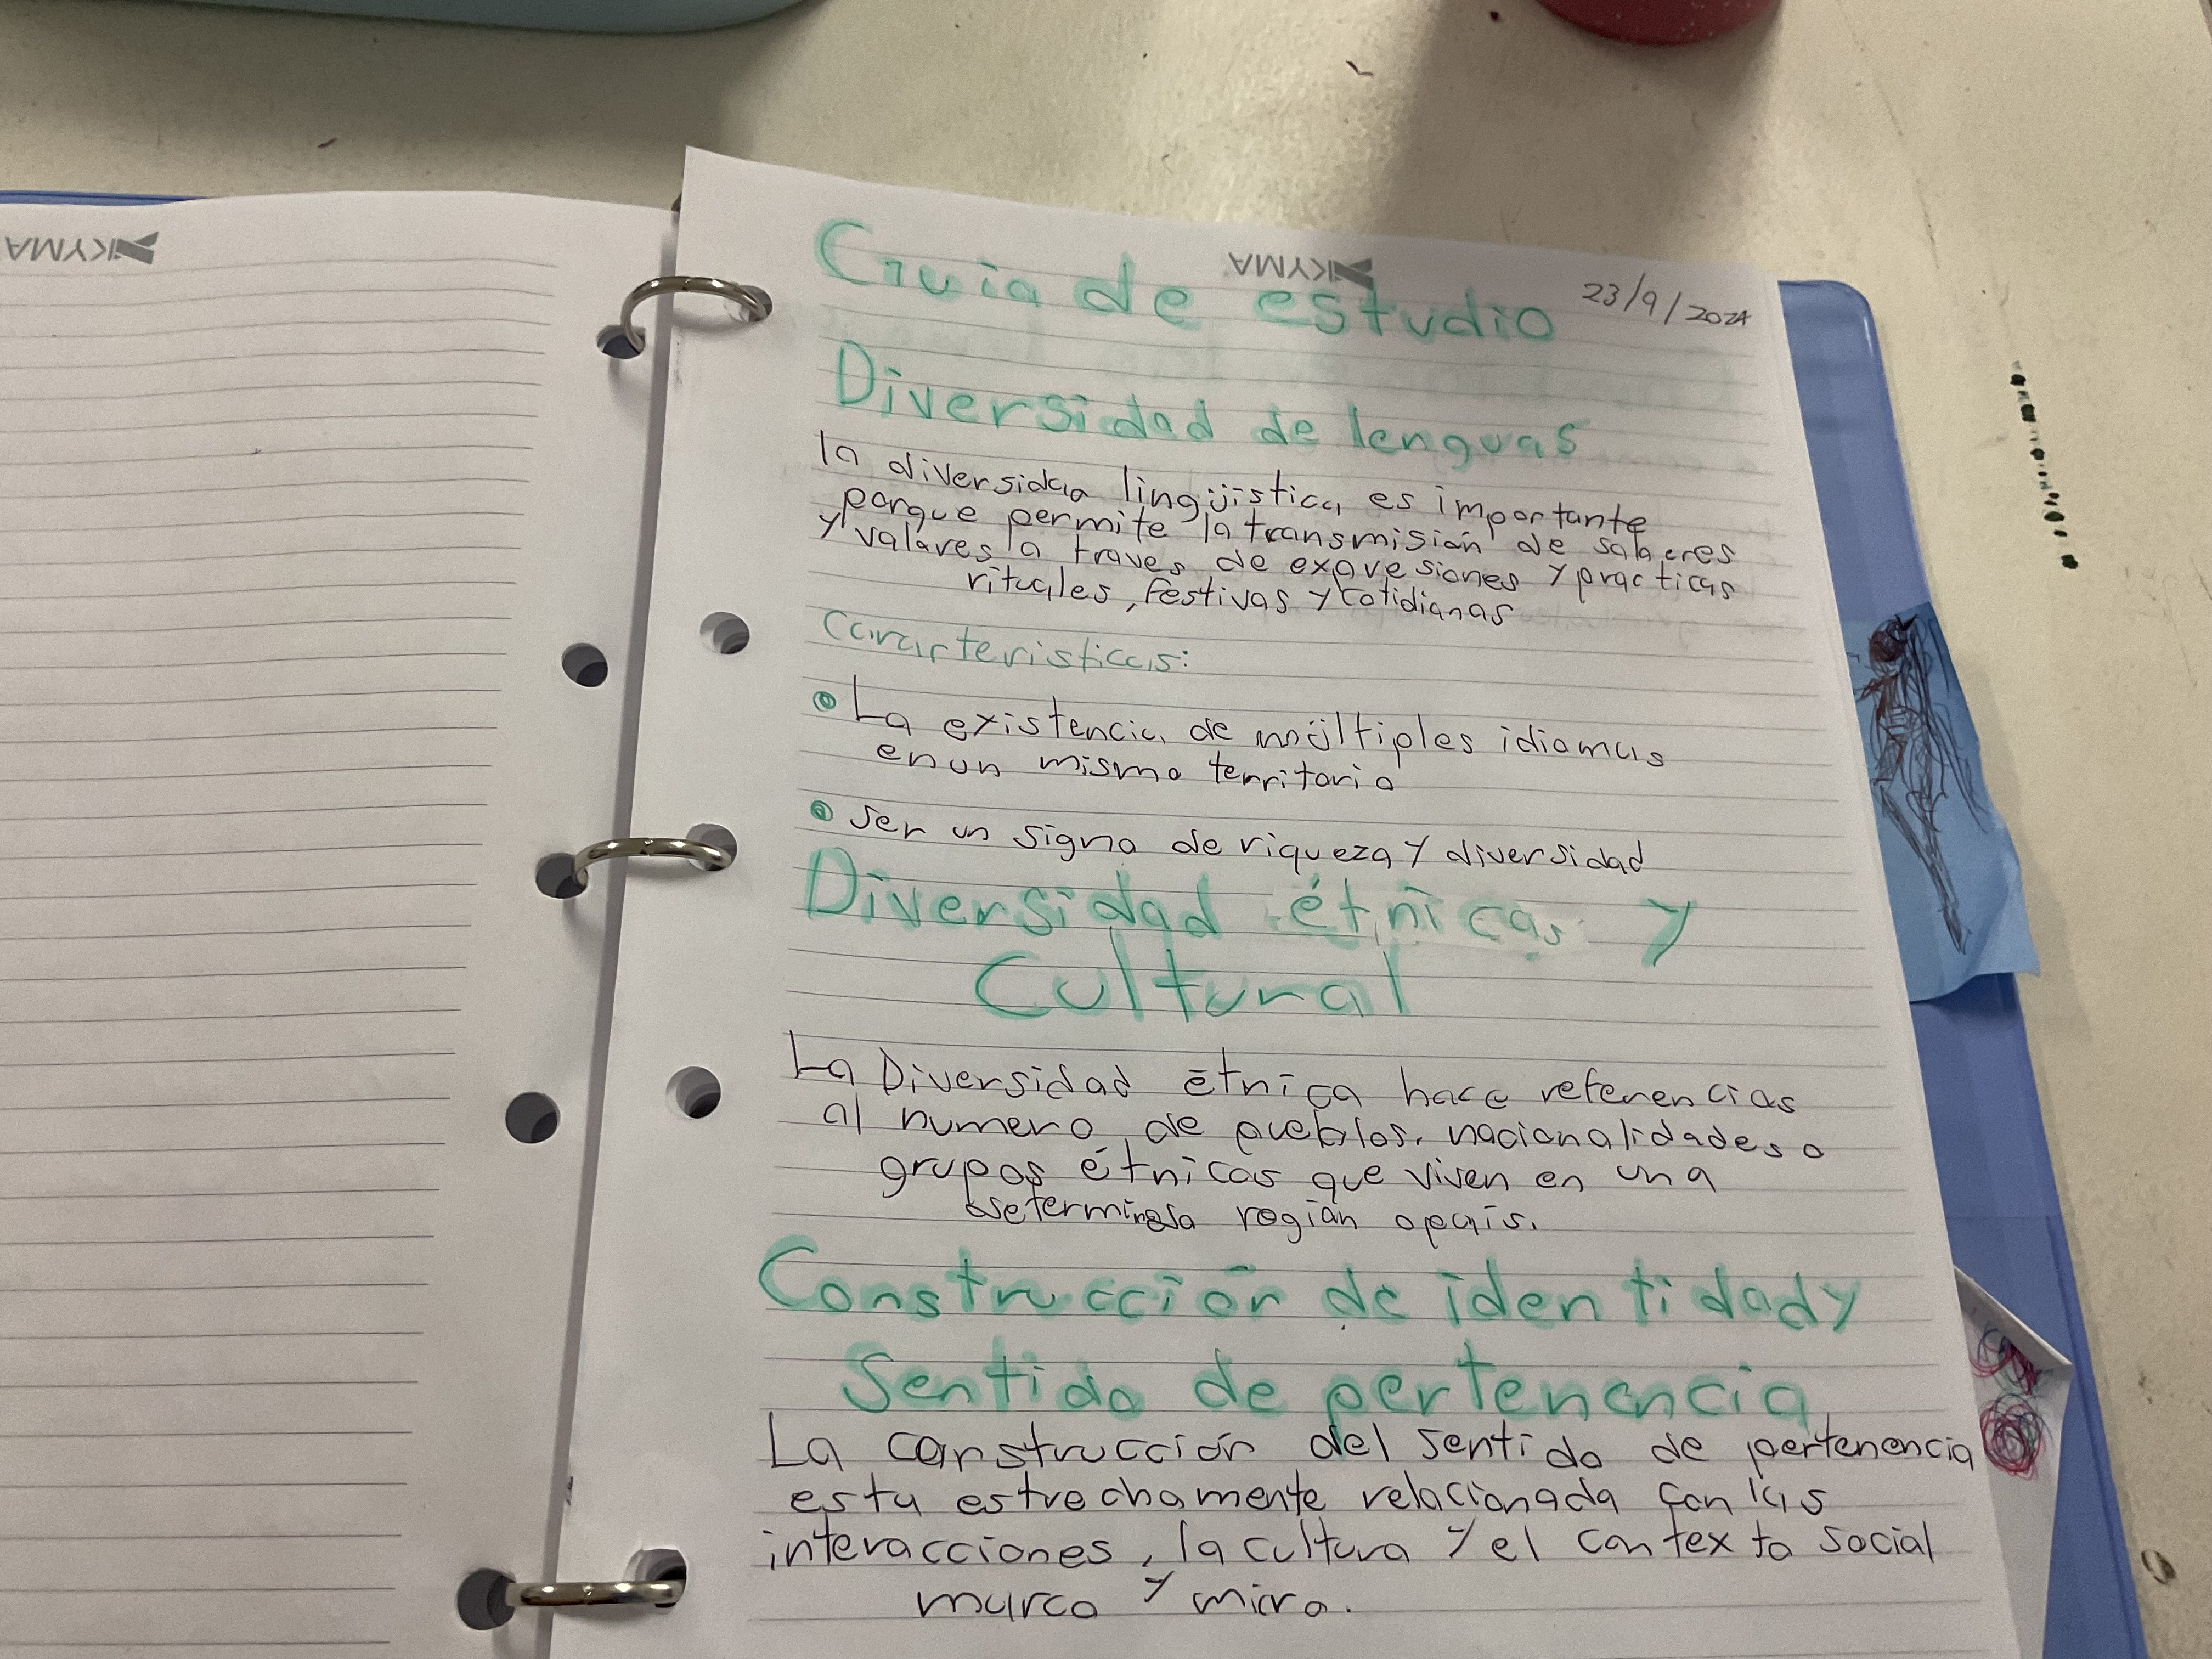 KYMA
KYMA
Guia de estudio
23/9/2024
Diversidad de lenguas
la diversidad lingüística es importante
porque permite la transmisión de saberes
y valores a traves de expresiones y practicas
rituales, festivas y cotidianas
Caracteristicas:
La existencia de múltiples idiomas
en un mismo territorio
Ser un signo de riqueza y diversidad
Diversidad étnicas y
Cultural
La Diversidad étnica hace referencias
al numero de pueblos, nacionalidades o
grupos étnicos que viven en una
determinada región o país.
Construcción de identidad y
Sentido de pertenencia
La construcción del sentido de pertenencia
esta estrechamente relacionada con las
interacciones, la cultura y el contexto social
marco y micro.